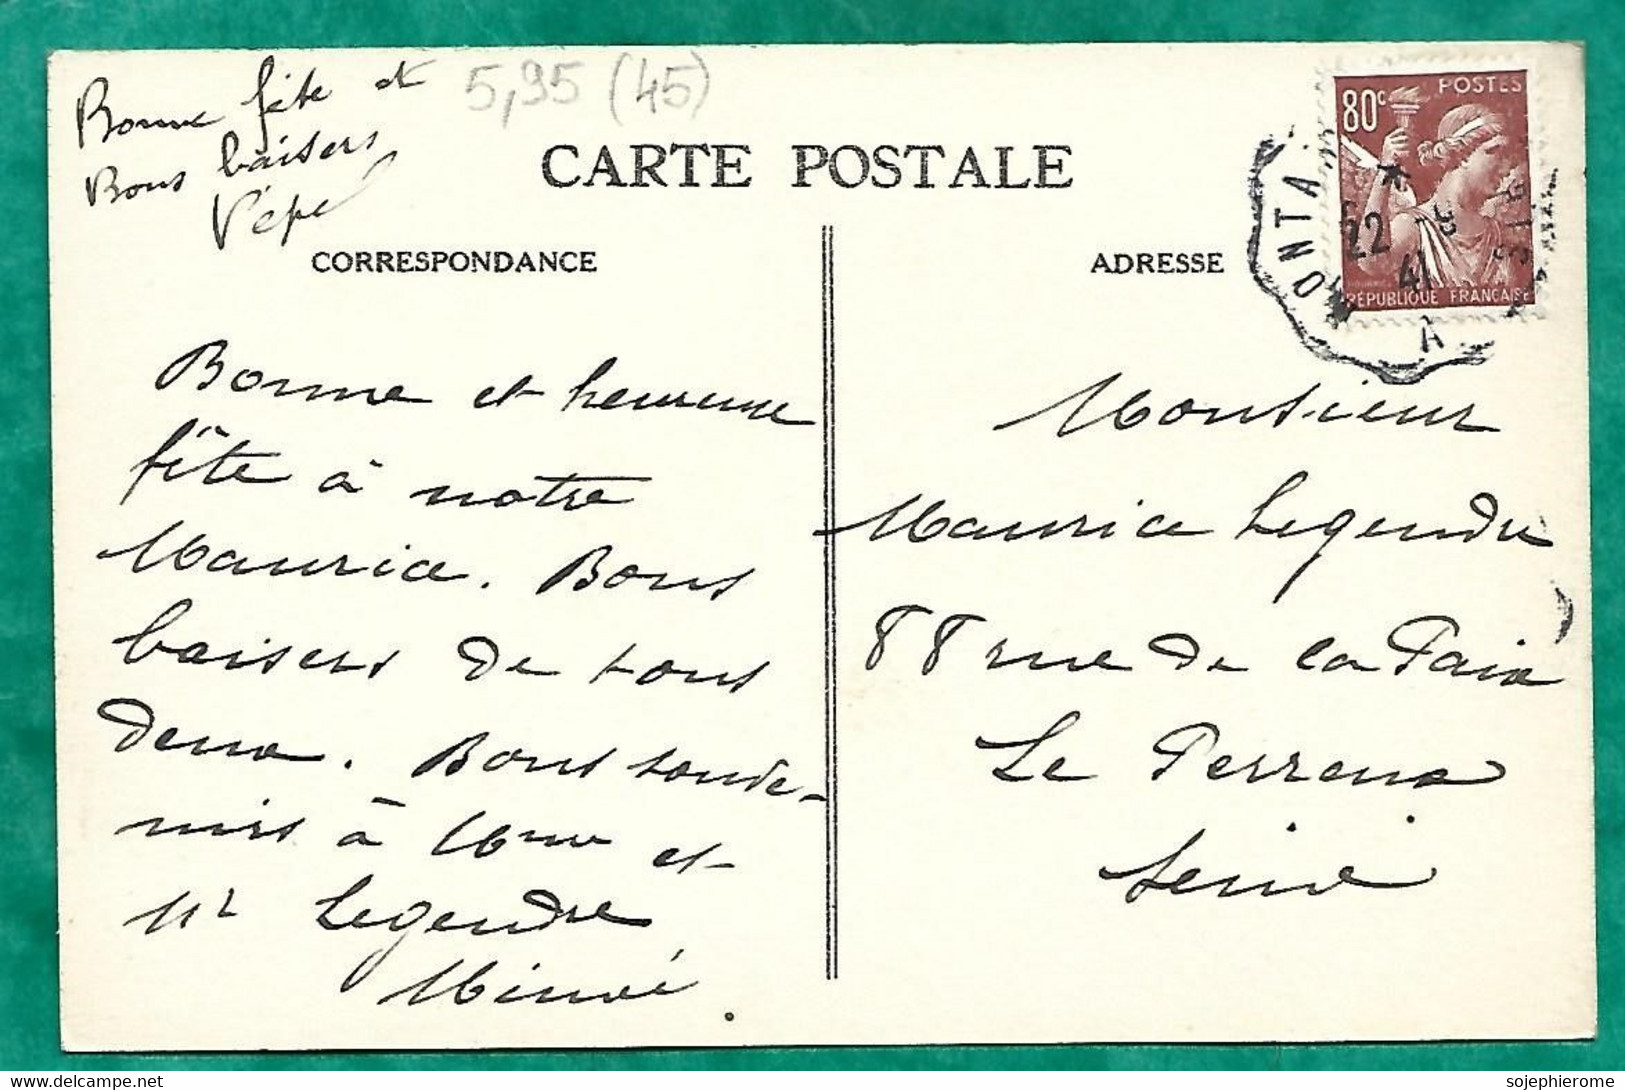 Bonne fête et
Bons baisers
Pépé
5,95 (45)
CARTE POSTALE
CORRESPONDANCE
ADRESSE
80c
POSTES
RÉPUBLIQUE FRANÇAISE
MONTA
22
41
A
Bonne et heureuse
fête à notre
Maurice. Bons
baisers de tous
deux. Bons souve-
nirs à Mme et
Mr Legendre
Monsieur
Maurice Legendre
88 rue de la Paix
Le Perreux
Seine
sojephierome
delcampe.net